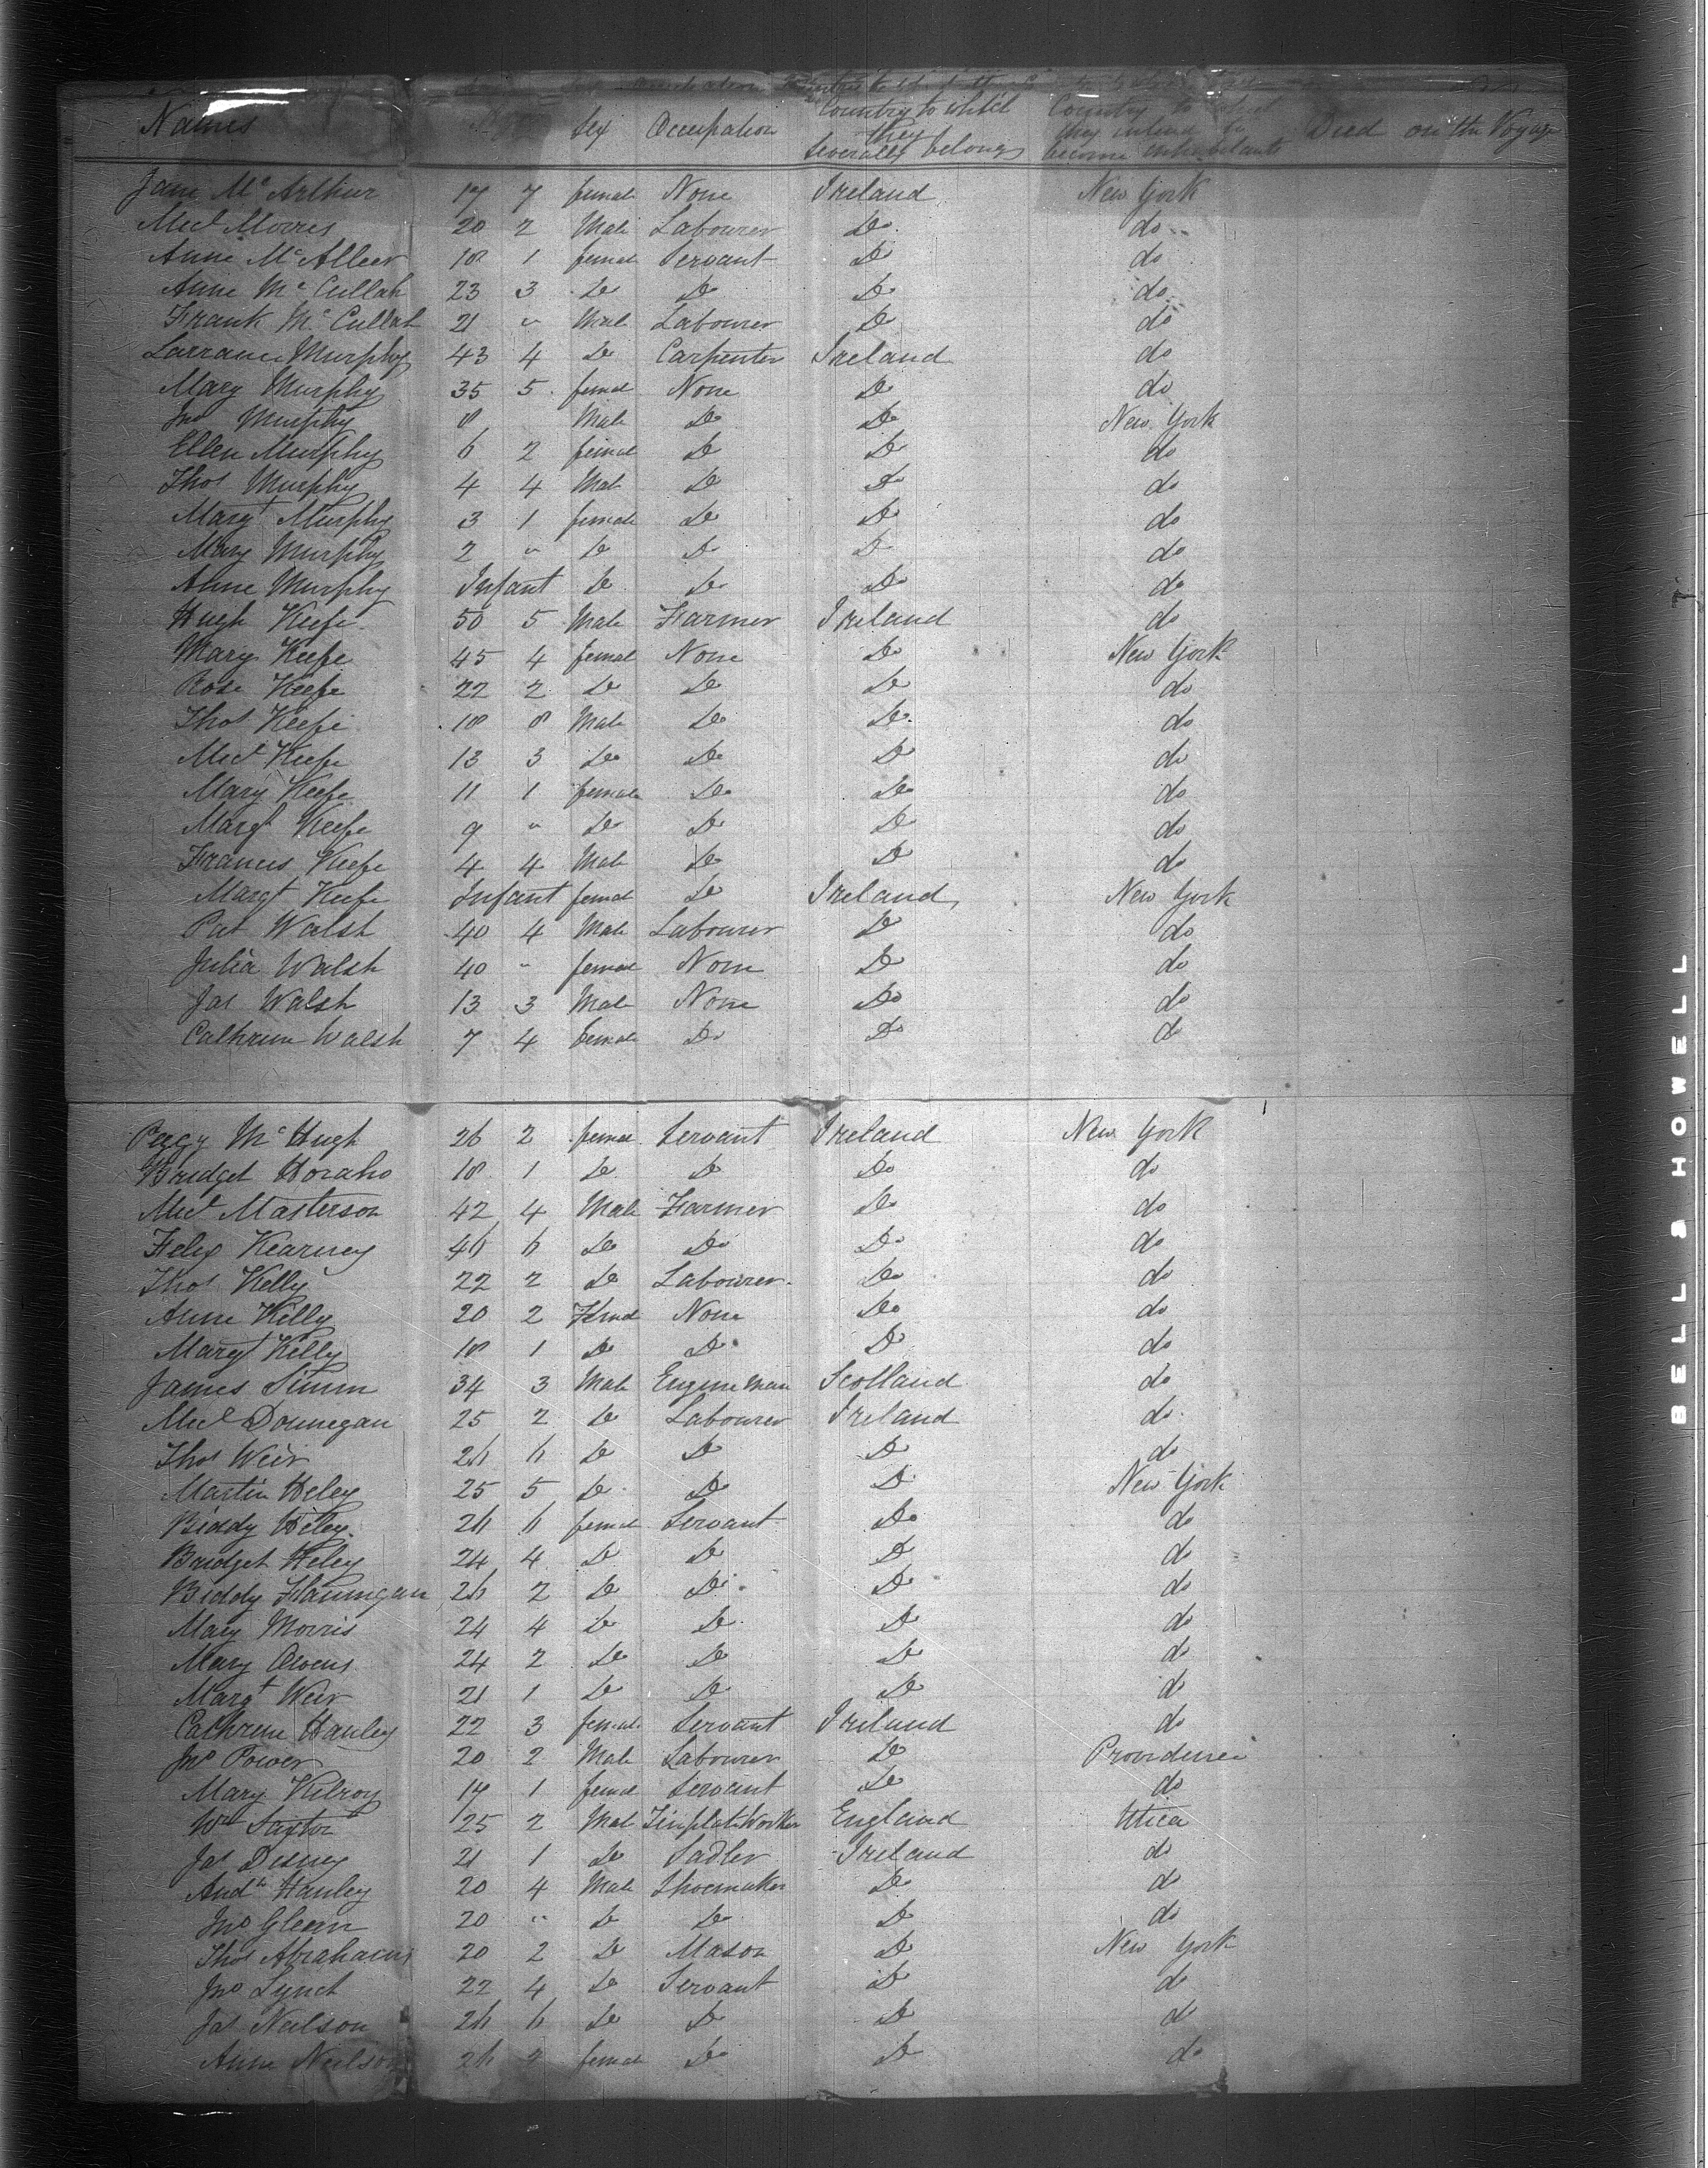 Names Age Sex Occupation Country to which they severally belong Country to which they intend to become inhabitants Died on the Voyage
Jane McArthur 17 7 female None Ireland New York
Micl Morris 20 2 Male Labourer Do do
Anne McAlleer 18 1 female Servant Do do
Anne McCullah 23 3 Do Do Do do
Frank McCullah 21 " Male Labourer Do do
Larrance Murphy 43 4 Do Carpenter Ireland do
Mary Murphy 35 5 femal None Do do
Jno Murphy 8 Male Do Do New York
Ellen Murphy 6 2 femal Do Do do
Thos Murphy 4 4 Mal Do Do do
Margt Murphy 3 1 female Do Do do
Mary Murphy 2 " Do Do Do do
Anne Murphy Infant Do Do Do do
Hugh Keefe 50 5 Male Farmer Ireland do
Mary Keefe 45 4 femal None Do New York
Rose Keefe 22 2 Do Do Do do
Thos Keefe 18 8 Male Do Do do
Micl Keefe 13 3 Do Do Do do
Mary Keefe 11 1 female Do Do do
Margt Keefe 9 " Do Do Do do
Francis Keefe 4 4 Male Do Do do
Margt Keefe Infant femal Do Ireland New York
Pat Walsh 40 4 Male Labourer Do do
Julia Walsh 40 " female None Do do
Jas Walsh 13 3 Male None Do do
Cathrine Walsh 7 4 female Do Do do
Peggy McHugh 26 2 femal Servant Ireland New York
Bridget Horaho 18 1 Do Do Do do
Micl Masterson 42 4 Male Farmer Do do
Felix Kearney 46 6 Do Do Do do
Thos Kelly 22 2 Do Labourer Do do
Anne Kelly 20 2 Femal None Do do
Margt Kelly 18 1 Do Do Do do
James Simm 34 3 Male Engine man Scotland do
Micl Dounegan 25 2 Do Labourer Ireland do
Thos Weir 26 6 Do Do Do do
Martin Heley 25 5 Do Do Do New York
Biddy Heley 26 6 femal Servant Do do
Bridget Heley 24 4 Do Do Do do
Biddy Flannigan 26 2 Do Do Do do
Mary Morris 24 4 Do Do Do do
Mary Owens 24 2 Do Do Do do
Margt Weir 21 1 Do Do Do do
Cathrine Hanley 22 3 female Servant Ireland do
Jno Power 20 2 Male Labourer Do Providence
Mary Kilroy 19 1 femal Servant Do do
Wm Saxton 25 2 Mal Tinplate Worker England Utica
Jas Desney 21 1 Do Sadler Ireland do
Andw Hanley 20 4 Male Shoemaker Do do
Jno Gleern 20 " Do Do Do do
Thos Abrahams 20 2 Do Mason Do New York
Jno Lynch 22 4 Do Servant Do do
Jas Neilson 26 6 Do Do Do do
Anne Neilson 26 2 female Do Do do
BELL & HOWELL